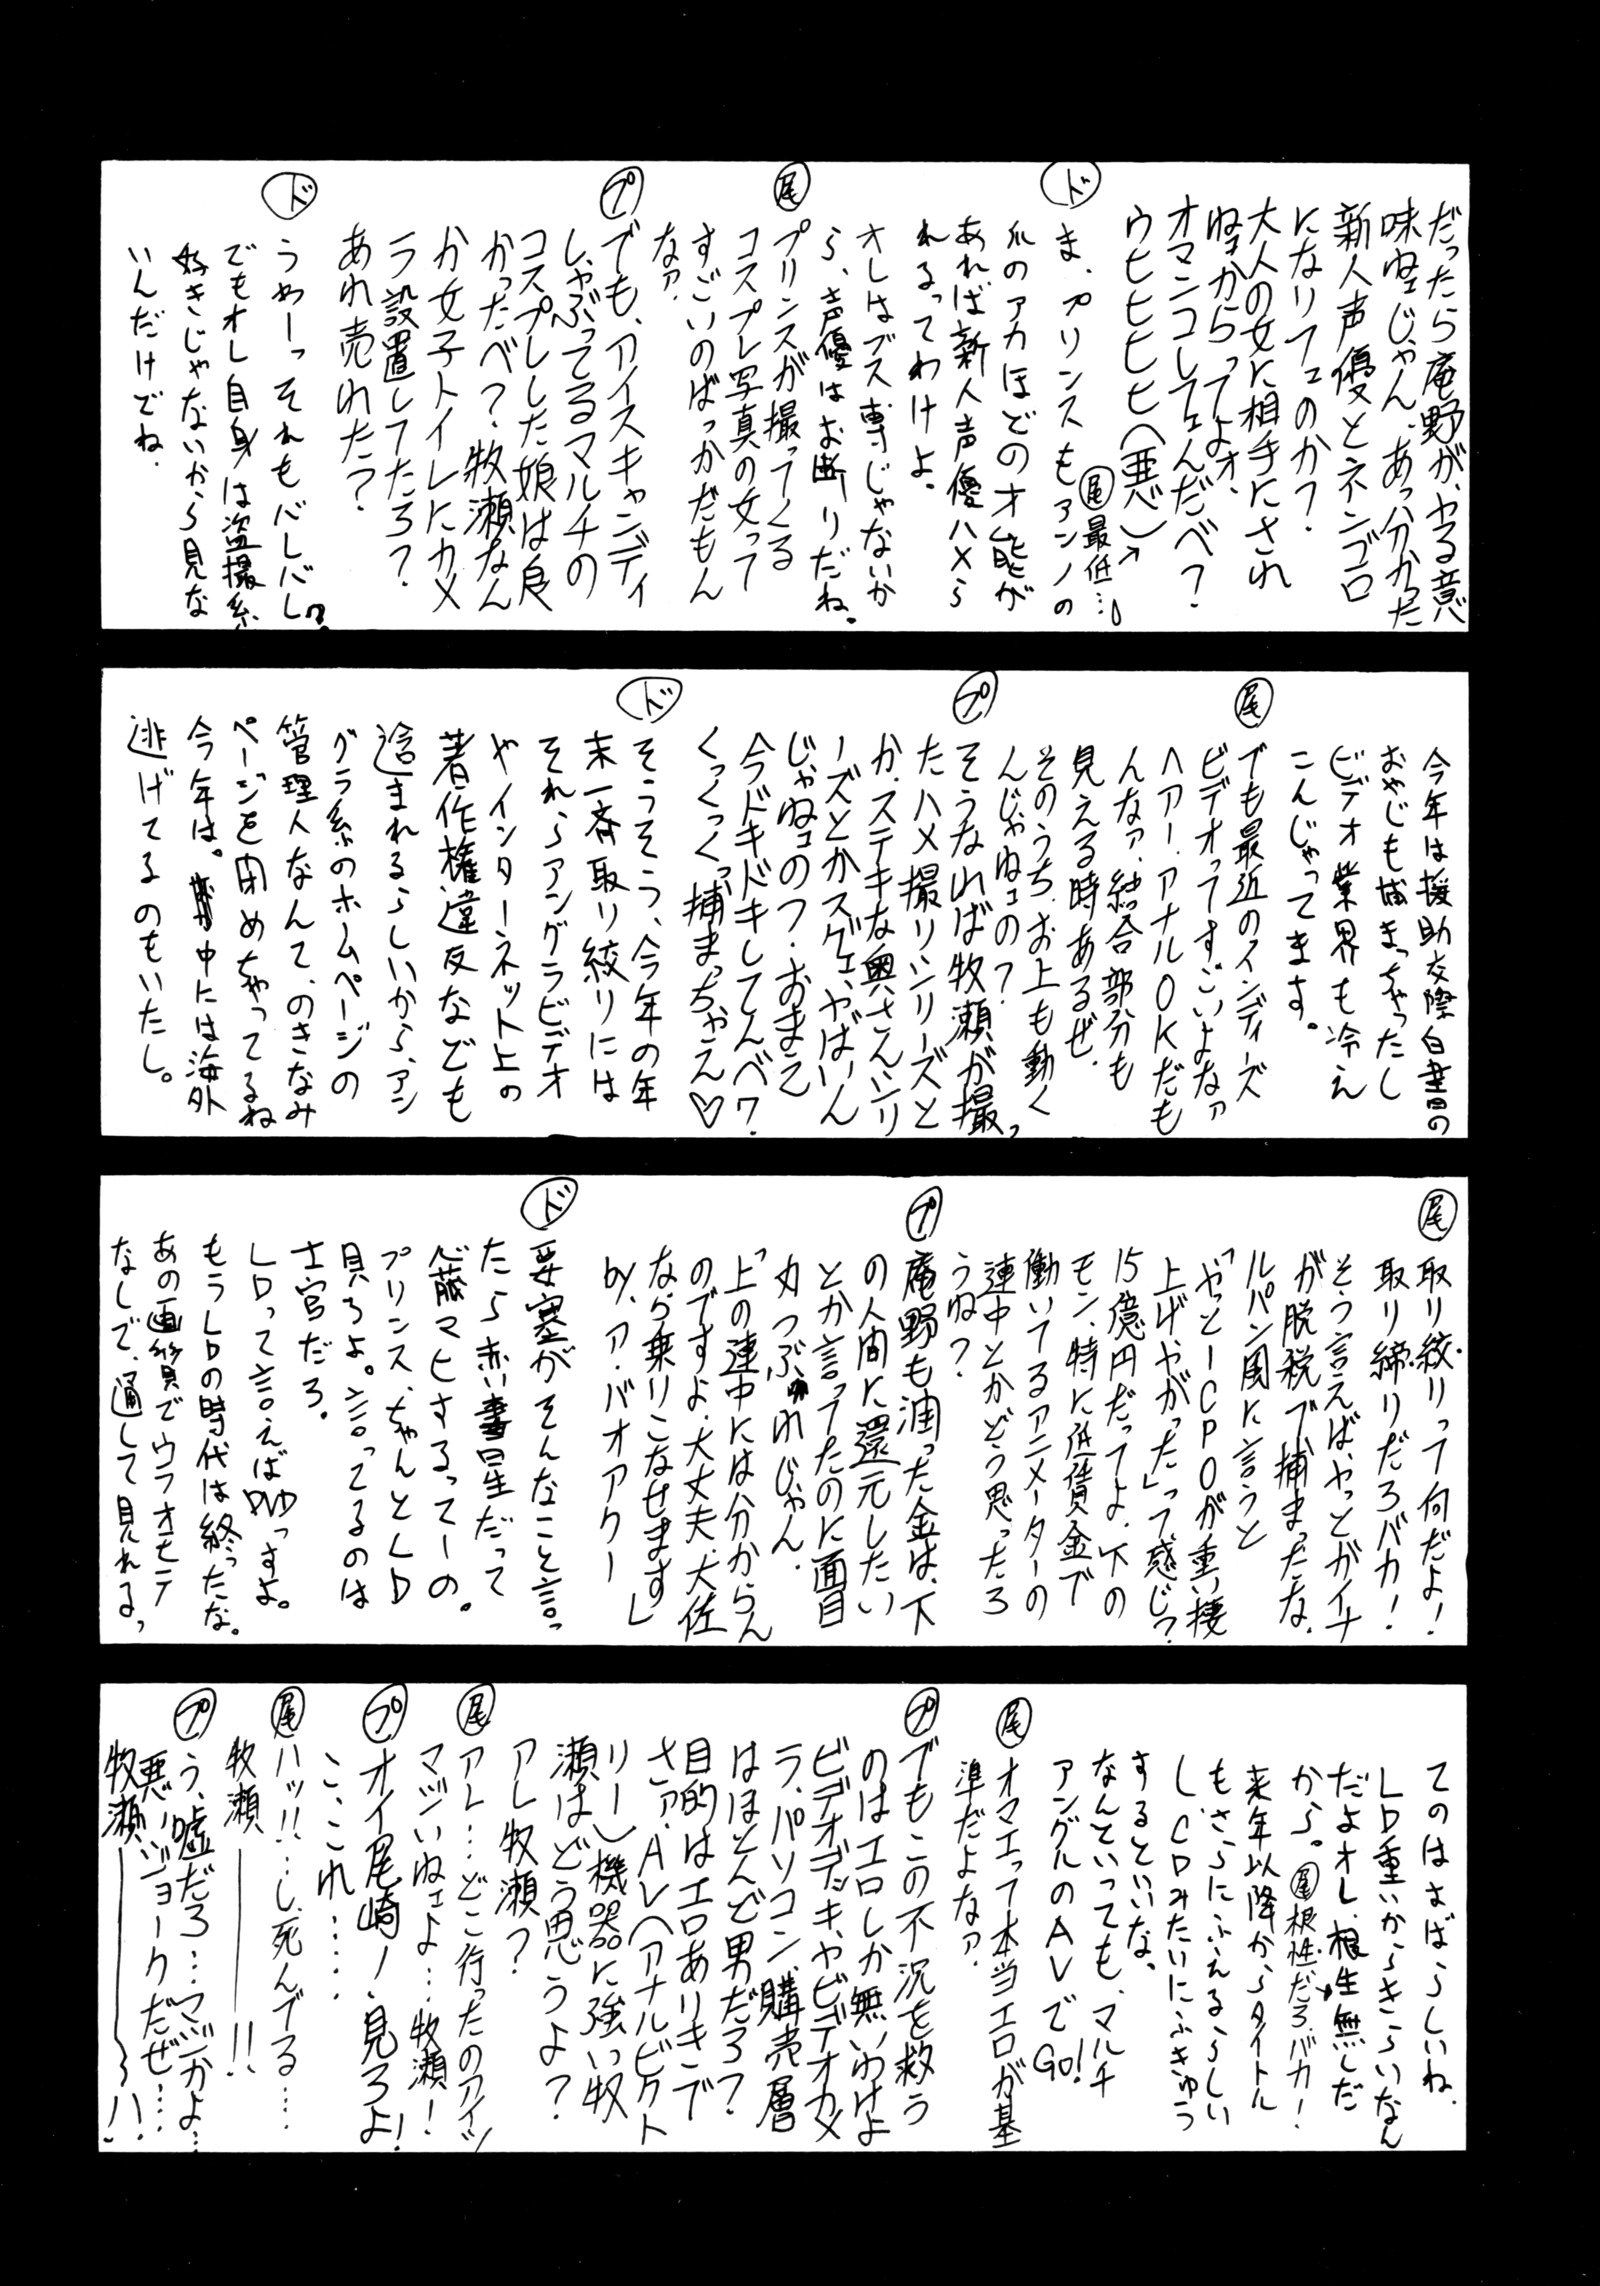 だったら庵野が、やる意
味ねェじゃん、あっ分かった
新人声優とネンゴロ
になりてェのか?
大人の女に相手にされ
ねェからってよォ、
オマンコしてェんだべ?
ウヒヒヒヒ(悪)
㊤最低…
ま、プリンスもアンノの
爪のアカほどの才能が
あれば新人声優ハメら
れるってわけよ。
オレはブス専じゃないか
ら、声優はお断りだね。
プリンスが撮ってくる
コスプレ写真の女って
すごいのばっかだもん
なァ.
でも、アイスキャンディ
しゃぶってるマルチの
コスプレした娘は良
かったべ?、牧瀬なん
か女子トイレにカメ
ラ設置してたろ?
あれ売れた?
うわーっそれもバレバレ?
でもオレ自身は盗撮系
好きじゃないから見な
いんだけどね.
今年は援助交際白書の
おやじも捕まっちゃったし
ビデオ業界も冷え
こんじゃってます。
でも最近のインディーズ
ビデオってすごいよなァ
ヘアー、アナルOKだも
んなァ、結合部分も
見える時あるぜ.
そのうち、お上も動く
んじゃねェの?
そうなれば牧瀬が撮っ
たハメ撮りシリーズと
か、ステキな奥さんシリ
ーズとかスゲェやばいん
じゃねェの?、おまえ
今ドキドキしてんべ?.
くっくっくっ捕まっちゃえ♡
そうそう、今年の年
末一斉取り絞りには
それらアングラビデオ
やインターネット上の
著作権違反なども
含まれるらしいから、アン
グラ系のホームページの
管理人なんて、のきなみ
ページを閉めちゃってるね
今年は。中には海外
逃げてるのもいたし。
取り絞りって何だよ!
取り締りだろバカ!
そう言えば、やっとガイナ
が脱税で捕まったな.
ルパン風に言うと
「やっとーICPOが重い腰
上げやがった」って感じ?
15億円だってよ、下の
モン、特に低賃金で
働いてるアニメーターの
連中とかどう思ったろ
うね?
庵野も浦った金は、下
の人間に還元したい
とか言ってたのに面目
丸つぶれじゃん.
「上の連中には分からん
のですよ、大丈夫、大佐
なら乗りこなせます」
by、ア・バオアクー
要塞がそんなこと言っ
たら赤い彗星だって
心臓マヒするってーの.
プリンス、ちゃんとLD
見ろよ。言ってるのは
士官だろ.
LDって言えばDVDっすよ。
もうLDの時代は終ったな。
あの画質でウラオモテ
なしで、通して見れるっ
てのはすばらしいね.
LD重いからきらいなん
だよオレ、根生無しだ
から。㊤根性だろバカ!
来年以降からタイトル
もさらにふえるらしい
し、CDみたいにふきゅう
するといいな。
なんていっても、マルチ
アングルのAVでGO!
オマエって本当エロが基
準だよなァ.
でもこの不況を救う
のはエロしか無いわけよ
ビデオデッキやビデオカメ
ラ、パソコン、購売層
はほとんど男だろ?
目的はエロありきで
さァ、AV(アナルビクト
リー)機器に強い牧
瀬はどう思うよ?
アレ牧瀬?
アレ…どこ行ったのアイツ
マズいねェよ…牧瀬!
オイ尾崎!、見ろよ!
こ、これ……
ハッ!!…し、死んでる…
牧瀬――――!!
う、嘘だろ…マジかよ…
悪いジョークだぜ……
牧瀬――――〜ハ!